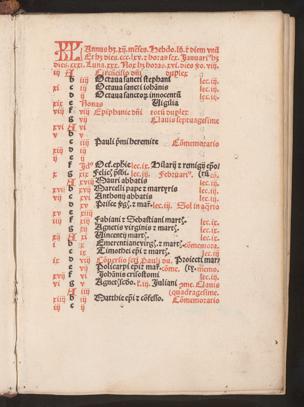 KL Annus hz .xij. mẽses. Hebdo. lij. et diem vnũ
Et hz dies. ccc.lxv. et horas sex. Januari9 hz
dies. xxxi. Luna. xxx. Nox hz horas. xvi. dies vo. viij.
iij A Circũcisio dñi duplex
b iiij Octaua sancti stephani lec.iij.
xi c iij Octaua sancti iohãnis lec.iij.
d ij Octaua sanctorum innocentũ lec.iij.
xix e Nonas Uigilia
viij f viij Epiphanie dñi totũ duplex
g vij Clauis septuagesime
xvi A vi
v b v
c iiij Pauli primi heremite Cõmemoratio
xiij d iij
ij e ij
f Idus Oct. ephie lec.ix. Hilarij et remigij epõrum
x g xix Felicis p̃sbi. lec.iij. Februari9.
A xviij Mauri abbatis lec.iij.
xviij b xvij Marcelli pape et martyris lec.iij.
vij c xvi Anthonij abbatis lec.iij.
d xv Prisce vgis et mar. lec.iij. Sol in aq̃rio
xv e xiiij
iiij f xiij Fabiani et Sebastiani martyrum lec.ix.
g xij Agnetis virginis et martyris lec.ix.
xij A xi Uincentij martyris lec.ix.
i b x Emerentiane virginis et martyris cõmemora.
c ix Timothei epi et martyris lec.iij.
ix d viij Cõuersio scti Pauli du. Proiecti mart.
e vij Policarpi epi et mar. cõme.
xvij f vi Iohãnis crisostomi lec.iij.
vi g v Agnetis secundo. l.iij. Juliani cõme. Clauis
A iiij quadragesime.
xiiij b iij Matthie epi et cõfesso. Cõmemoratio
iij c ij